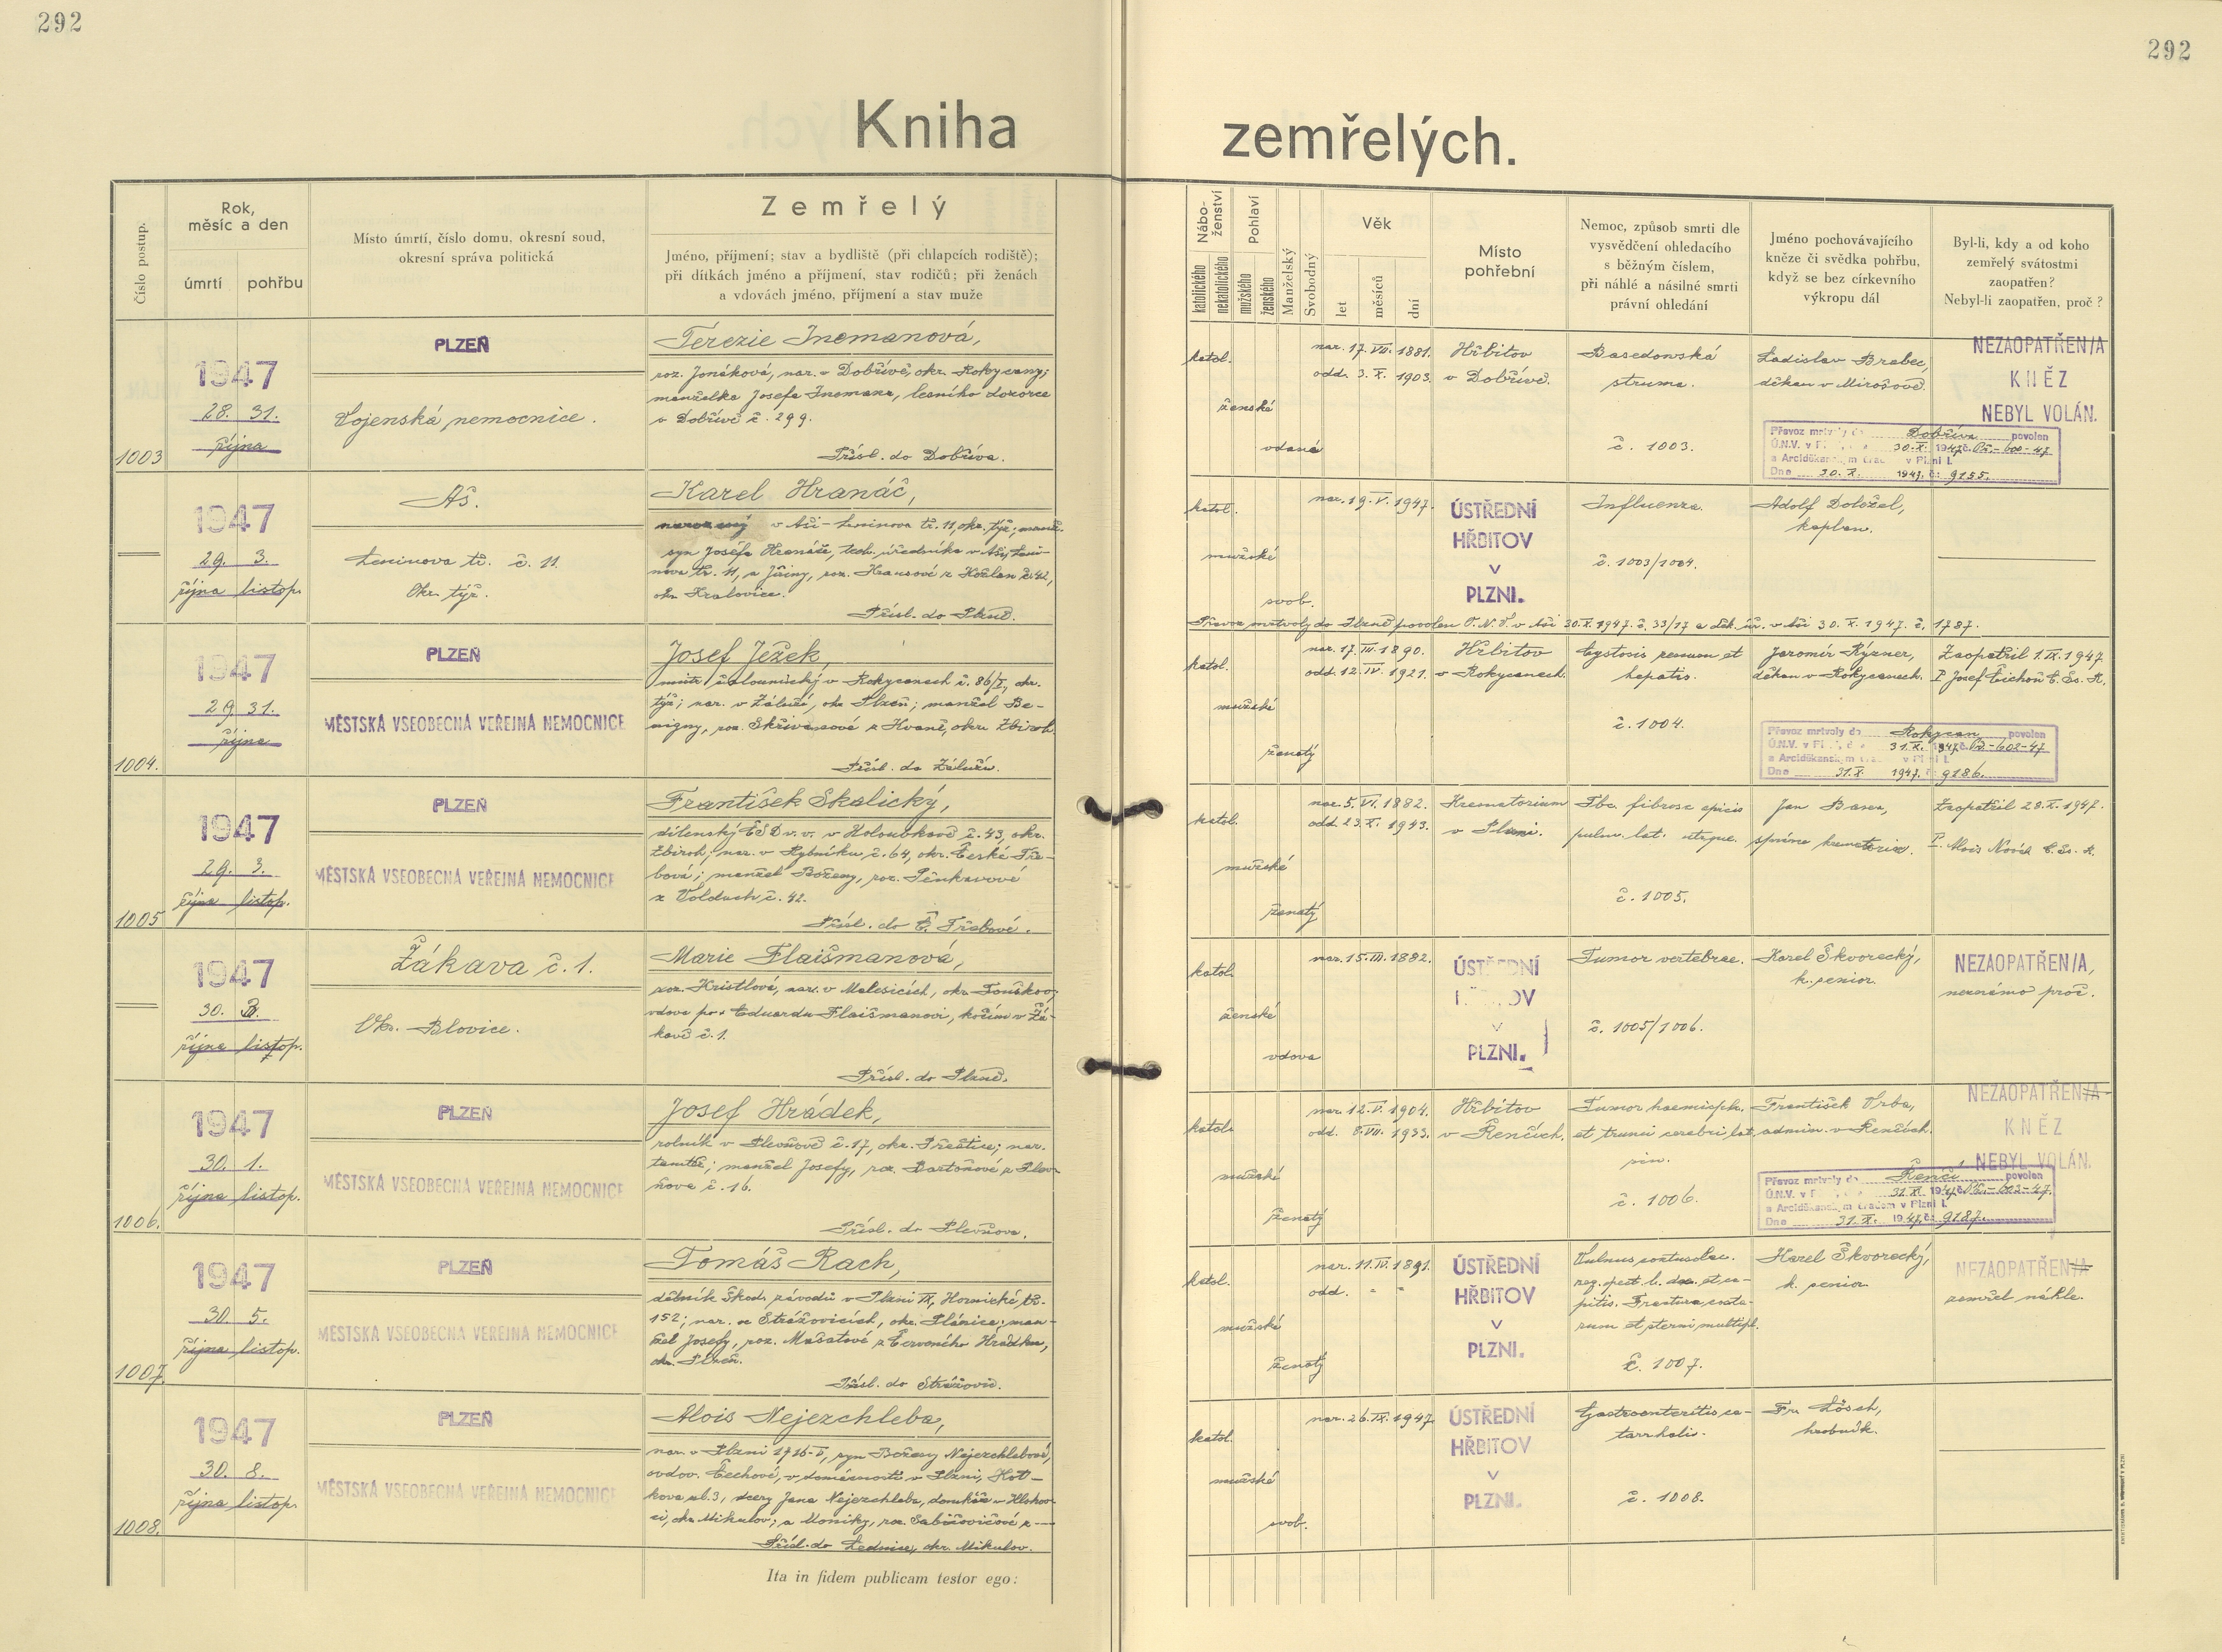 292
292
Kniha zemřelých.
Číslo postup.
Rok,
měsíc a den
úmrtí
pohřbu
Místo úmrtí, číslo domu, okresní soud,
okresní správa politická
Zemřelý
Jméno, příjmení; stav a bydliště (při chlapcích rodiště);
při dítkách jméno a příjmení, stav rodičů; při ženách
a vdovách jméno, příjmení a stav muže
Nábo-
ženství
katolického
nekatolického
Pohlaví
mužského
ženského
Manželský
Svobodný
Věk
let
měsíců
dní
Místo
pohřební
Nemoc, způsob smrti dle
vysvědčení ohledacího
s běžným číslem,
při náhlé a násilné smrti
právní ohledání
Jméno pochovávajícího
kněze či svědka pohřbu,
když se bez církevního
výkropu dál
Byl-li, kdy a od koho
zemřelý svátostmi
zaopatřen?
Nebyl-li zaopatřen, proč?
1003
1947
28. 31.
října
PLZEŇ
Vojenská nemocnice.
Terezie Inemanová,
roz. Jonáková, nar. v Dobřívě, okr. Rokycany;
manželka Josefa Inemana, lesního dozorce
v Dobřívě č. 299.
Přísl. do Dobříva.
katol.
ženské
vdaná
nar. 17. VIII. 1881.
odd. 3. X. 1903.
Hřbitov
v Dobřívě.
Basedowská
struma.
č. 1003.
Ladislav Brabec,
děkan v Mirošově.
NEZAOPATŘEN/A
KNĚZ
NEBYL VOLÁN.
Převoz mrtvoly do Dobříva povolen
30. X. 1947 č.
a Arciděkanským v Plzni I.
Dne 30. X. 1947. č. 9155.
1947
29. 3.
října listop.
Aš.
Leninova tř. č. 11.
Okr. týž.
Karel Hranáč,
narozený v Aši - Leninova tř. 11, okr. týž; manž.
syn Josefa Hranáče, úředníka v Aši, Leni-
nova tř. 11, a Jiřiny, roz. Krausové z Kožlan č. 42,
okr. Kralovice.
Přísl. do Plzně.
katol.
mužské
svob.
nar. 19. V. 1947.
ÚSTŘEDNÍ
HŘBITOV
V
PLZNI.
Influenza.
č. 1003/1004.
Adolf Doležel,
kaplan.
Převoz mrtvoly do Plzně povolen O.N.V. v Aši 30. X. 1947. č. 33/17 a děk. úř. v Aši 30. X. 1947. č. 1787.
1004.
1947
29. 31.
října
PLZEŇ
MĚSTSKÁ VŠEOBECNÁ VEŘEJNÁ NEMOCNICE
Josef Ježek,
mistr čalounický v Rokycanech č. 86/I, okr.
týž; nar. v Záluží, okr. Plzeň; manžel Be-
nigny, roz. Skřivanové z Hvaně, okr. Zbiroh.
Přísl. do Záluží.
katol.
mužské
ženatý
nar. 17. III. 1890.
odd. 12. IV. 1921.
Hřbitov
v Rokycanech.
Cystosis renum et
hepatis.
č. 1004.
Jaromír Rýzner,
děkan v Rokycanech.
Zaopatřil 1. IX. 1947
P. Josef Čichoň C. Ss. R.
Převoz mrtvoly do Rokycan povolen
31. X. 1947 č. 602-47
a Arciděkanským v Plzni I.
Dne 31. X. 1947. č. 9186.
1005
1947
29. 3.
října listop.
PLZEŇ
MĚSTSKÁ VŠEOBECNÁ VEŘEJNÁ NEMOCNICE
František Skalický,
dílenský ČSD v. v. v Holoubkově č. 43, okr.
Zbiroh; nar. v Rybníku č. 64, okr. Česká Tře-
bová; manžel Boženy, roz. Pěnkavové
z Volduch č. 42.
Přísl. do Č. Třebové.
katol.
mužské
ženatý
nar. 5. VI. 1882.
odd. 23. X. 1943.
Krematorium
v Plzni.
Tbc. fibrosa apicis
pulm. lat. utrque.
č. 1005.
Jan
správce krematoria.
Zaopatřil 28. X. 1947.
P. Alois Novák C. Ss. R.
1947
30.
října listop.
Žákava č. 1.
Okr. Blovice.
Marie Flaišmanová,
roz. Kristlová, nar. v Malesicích, okr. Touškov;
vdova po Eduardu Flaišmanovi, kočím v Žá-
kavě č. 1.
Přísl. do Plzně.
katol.
ženské
vdova
nar. 15. III. 1882.
ÚSTŘEDNÍ
HŘBITOV
V
PLZNI.
Tumor vertebrae.
č. 1005/1006.
Karel Škvorecký,
k. senior.
NEZAOPATŘEN/A,
neznámo proč.
1006.
1947
30. 1.
října listop.
PLZEŇ
MĚSTSKÁ VŠEOBECNÁ VEŘEJNÁ NEMOCNICE
Josef Hrádek,
rolník v Plevňově č. 17, okr. Přeštice; nar.
tamtéž; manžel Josefy, roz. Bartoňové z Plev-
ňova č. 16.
Přísl. do Plevňova.
katol.
mužské
ženatý
nar. 12. V. 1904.
odd. 8. VII. 1933.
Hřbitov
v Řenčích.
Tumor haemisph.
et trunci cerebri lat.
sin.
č. 1006.
František Vrba,
admin. v Řenčích.
NEZAOPATŘEN/A
KNĚZ
NEBYL VOLÁN.
Převoz mrtvoly do Řenčí povolen
31. X. 1947 č. 603-47.
a Arciděkanským úřadem v Plzni I.
Dne 31. X. 1947. č. 9187.
1007.
1947
30. 5.
října listop.
PLZEŇ
MĚSTSKÁ VŠEOBECNÁ VEŘEJNÁ NEMOCNICE
Tomáš Rach,
dělník Škod. závodů v Plzni IX, Hornická tř.
152; nar. ve Strážovicích, okr. Plánice; man-
žel Josefy, roz. Mašatové z Červeného Hrádku,
okr. Plzeň.
Přísl. do Strážovic.
katol.
mužské
ženatý
nar. 11. IV. 1891.
odd. " "
ÚSTŘEDNÍ
HŘBITOV
V
PLZNI.
Vulnus contusolac.
reg. pect. l. dex. et ca-
pitis. Fractura costa-
rum et sterni multipl.
č. 1007.
Karel Škvorecký,
k. senior.
NEZAOPATŘEN/A
zemřel náhle.
1008.
1947
30. 8.
října listop.
PLZEŇ
MĚSTSKÁ VŠEOBECNÁ VEŘEJNÁ NEMOCNICE
Alois Nejezchleba,
nar. v Plzni 1716-V, syn Boženy Nejezchlebové,
ovdov. Čechové, v domácnosti v Plzni, Kot-
kova ul. 3, dcery Jana Nejezchleba, domkáře v Hlohov-
ci, okr. Mikulov; a Moniky, roz. Sabičovičové z —
Přísl. do Lednice, okr. Mikulov.
katol.
mužské
svob.
nar. 26. IX. 1947.
ÚSTŘEDNÍ
HŘBITOV
V
PLZNI.
Gastroenteritis ca-
tarrhalis.
č. 1008.
Fr. Lösch,
hrobník.
Ita in fidem publicam testor ego: